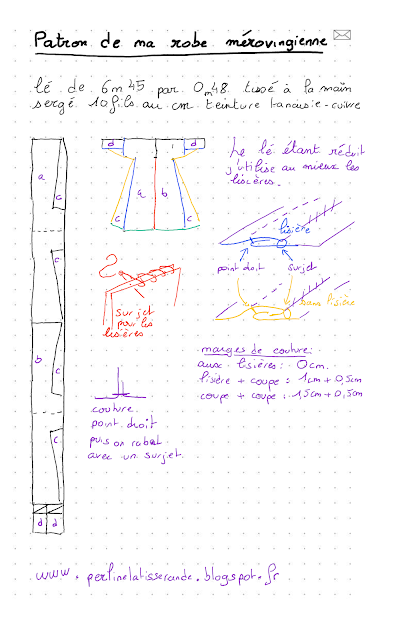 Patron de ma robe mérovingienne
lé de 6m45 par 0m48 tissé à la main
sergé 10 fils au cm teinture tanaisie-cuivre
a
c
c
b
c
c
d d
d
d
a
b
c
c
Le lé étant réduit
j'utilise au mieux les
lisières.
lisière
point droit
surjet
sans lisière
surjet
pour les
lisières
couture
point droit
puis on rabat
avec un surjet.
marges de couture:
aux lisières: 0cm.
lisière + coupe : 1cm + 0,5cm
coupe + coupe : 1,5cm + 0,5cm
www.perlinelatisserande.blogspot.fr